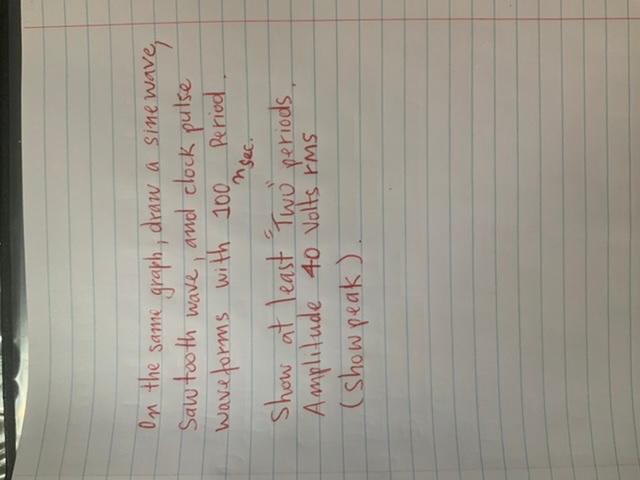 On the same graph, draw a sine wave,
sawtooth wave, and clock pulse
waveforms with 100 nsec. Period.
Show at least "Two" periods.
Amplitude 40 volts rms
(Show peak).